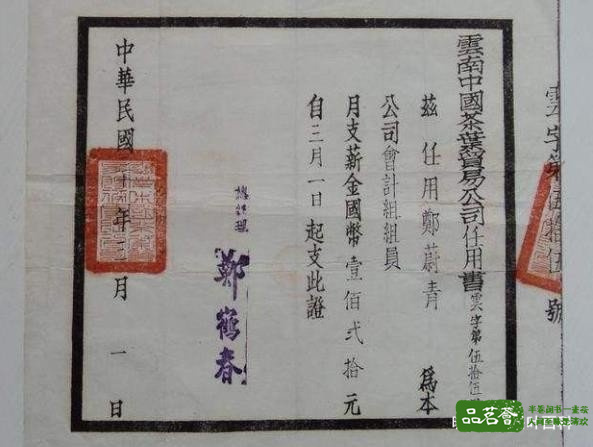 雲字第伍拾伍號
雲南中國茶葉貿易公司任用書 雲字第伍拾伍
茲任用鄭蔚青為本
公司會計組組員
月支薪金國幣壹佰弍拾元
自三月一日起支此證
總經理
鄭鶴春
中華民國 十年三月一日
品茗薈